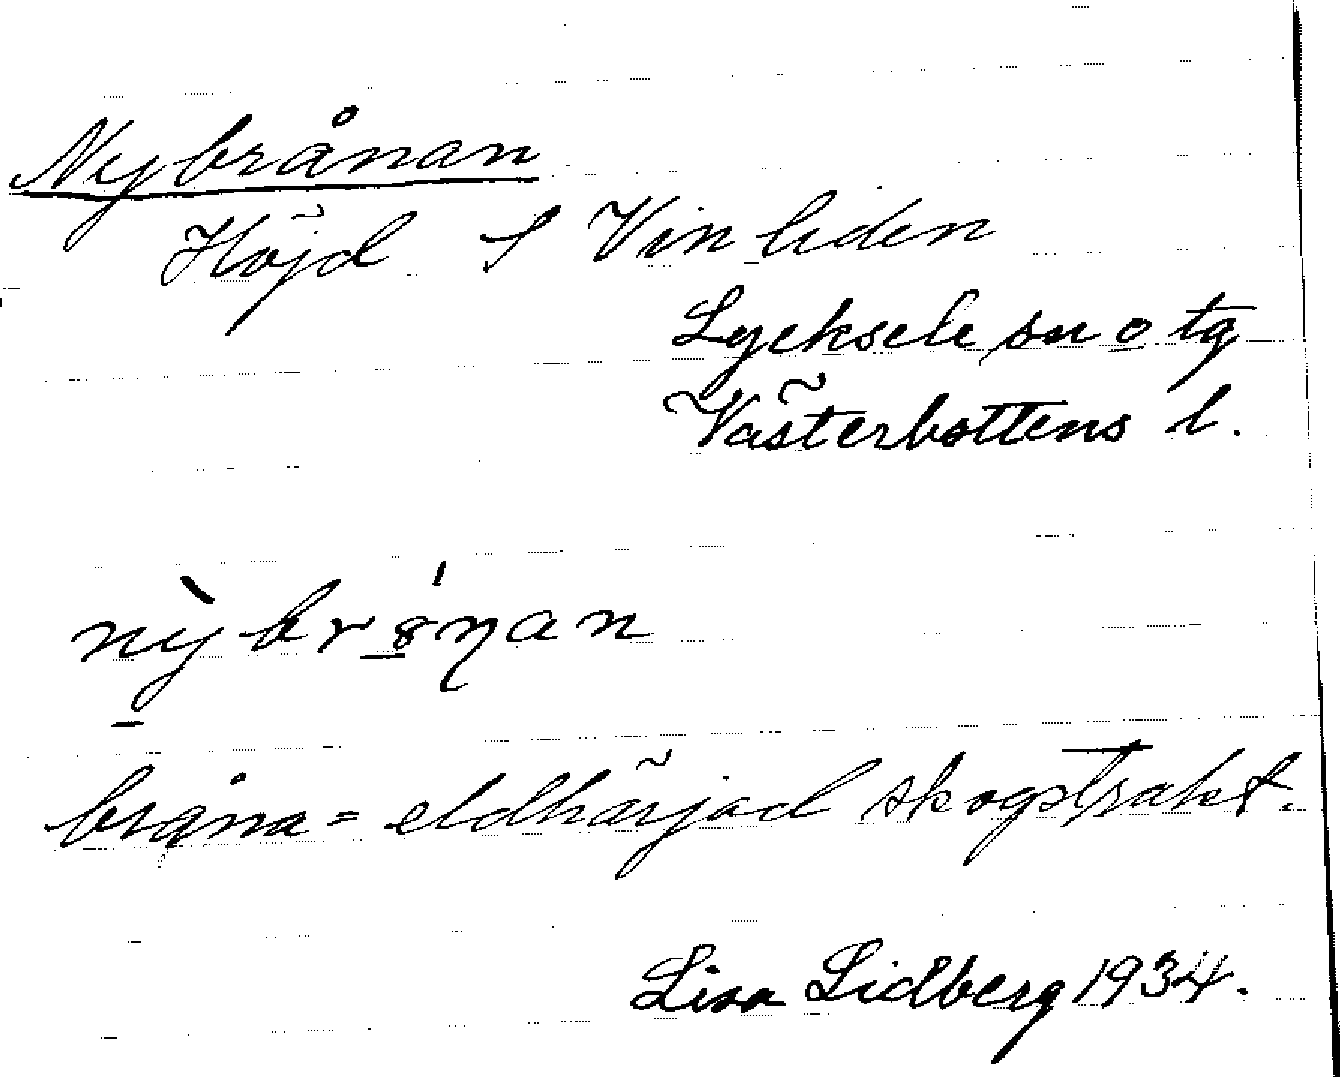 Nybrånan
Höjd S Vinliden
Lycksele sn o tg
Västerbottens l.
nỳbrøńan
bråna = eldhärjad skogstrakt.
Lisa Lidberg 1934.